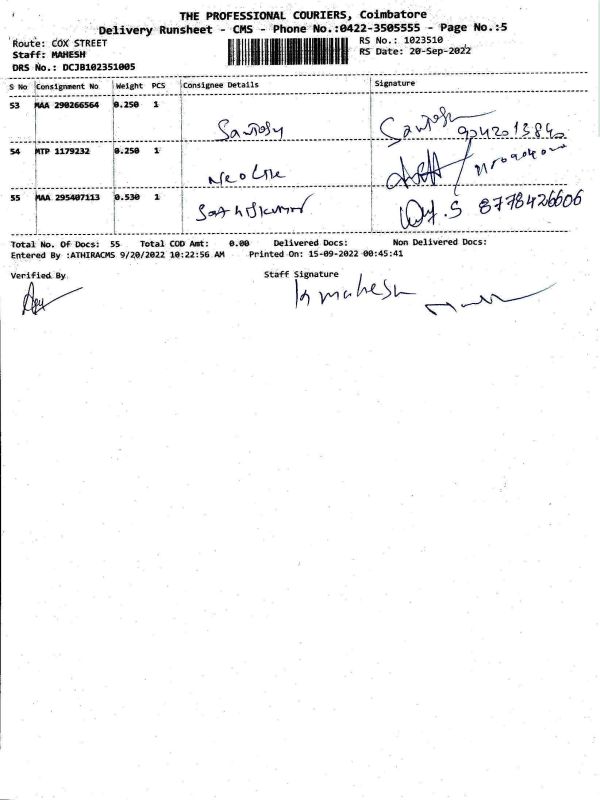 THE PROFESSIONAL COURIERS, Coimbatore
Delivery Runsheet - CMS - Phone No.:0422-3505555 - Page No.:5
Route: COX STREET
RS No.: 1023510
Staff: MAHESH
RS Date: 20-Sep-2022
DRS No.: DCJB102351005
S No Consignment No Weight PCS Consignee Details Signature
53 MAA 290266564 0.250 1
Santosh Santosh
54 MTP 1179232 0.250 1
55 MAA 295407113 0.530 1
S 8778426606
Total No. Of Docs: 55 Total COD Amt: 0.00 Delivered Docs: Non Delivered Docs:
Entered By :ATHIRACMS 9/20/2022 10:22:56 AM Printed On: 15-09-2022 00:45:41
Verified By Staff Signature
K mahesh